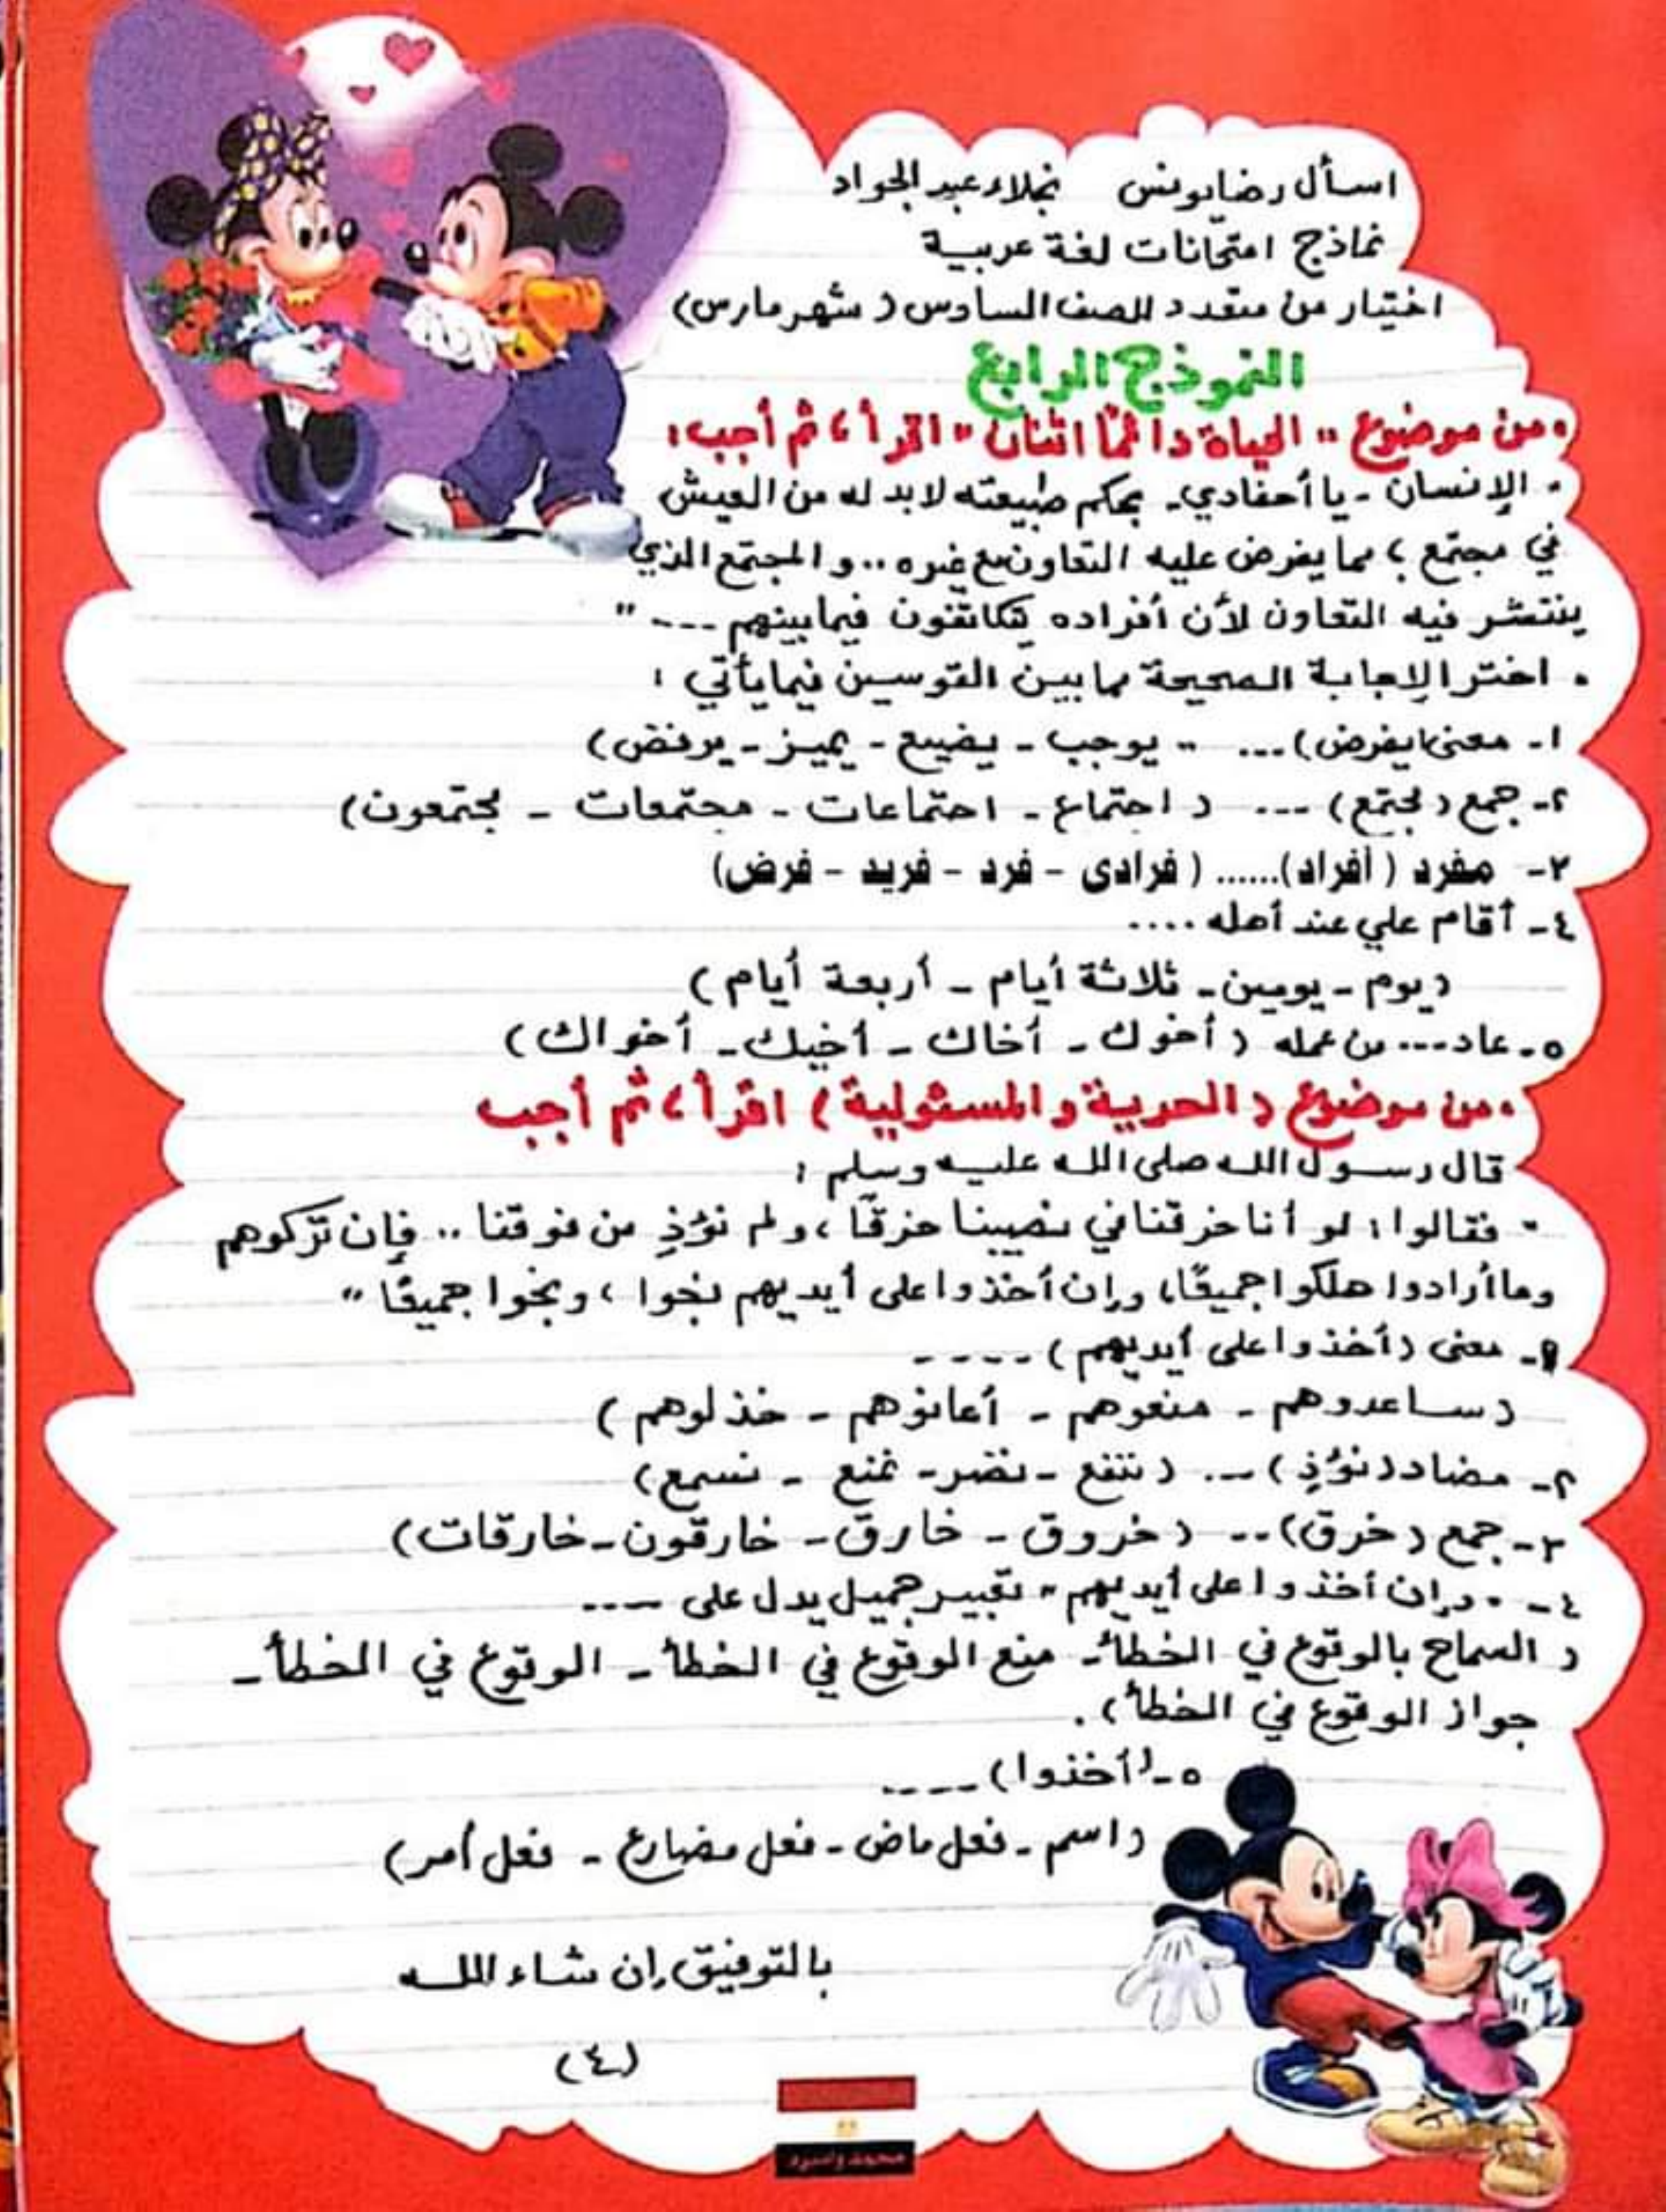 اسأل رضا يونس نجلاء عبد الجواد
نماذج امتحانات لغة عربية
اختيار من متعدد للصف السادس ( شهر مارس)
النموذج الرابع
• من موضوع " الحياة دائمًا اثنان " اقرأ، ثم أجب:
• الإنسان - يا أحفادي - بحكم طبيعته لابد له من العيش
في مجتمع ؛ مما يفرض عليه التعاون مع غيره .. والمجتمع الذي
ينتشر فيه التعاون لأن أفراده يتكاتفون فيما بينهم ---"
• اختر الإجابة الصحيحة مما بين القوسين فيما يأتي :
١- معنى (يفرض) ... " يوجب - يضيع - يميز - يرفض)
٢- جمع (مجتمع) --- ( اجتماع - اجتماعات - مجتمعات - مجتمعون)
٣- مفرد ( أفراد)...... ( فرادى - فرد - فريد - فرض)
٤- أقام علي عند أهله ....
(يوم - يومين - ثلاثة أيام - أربعة أيام )
٥- عاد --- من عمله ( أخوك - أخاك - أخيك - أخواك )
• من موضوع ( الحرية والمسئولية ) اقرأ، ثم أجب
قال رسول الله صلى الله عليه وسلم :
" فقالوا : لو أنا خرقنا في نصيبنا خرقًا ، ولم نؤذِ من فوقنا .. فإن تركوهم
وما أرادوا هلكوا جميعًا، وإن أخذوا على أيديهم نجوا ، ونجوا جميعًا "
١- معنى (أخذوا على أيديهم ) ----
( ساعدوهم - منعوهم - أعانوهم - خذلوهم )
٢- مضاد (نؤذِ ) --. ( ننفع - نضر - نمنع - نسمع)
٣- جمع ( خرق) -- ( خروق - خارق - خارقون - خارقات)
٤- " وإن أخذوا على أيديهم " تعبير جميل يدل على ----
( السماح بالوقوع في الخطأ - منع الوقوع في الخطأ - الوقوع في الخطأ -
جواز الوقوع في الخطأ ) .
٥- (أخذوا) ----
(اسم - فعل ماض - فعل مضارع - فعل أمر)
بالتوفيق إن شاء الله
(٤)